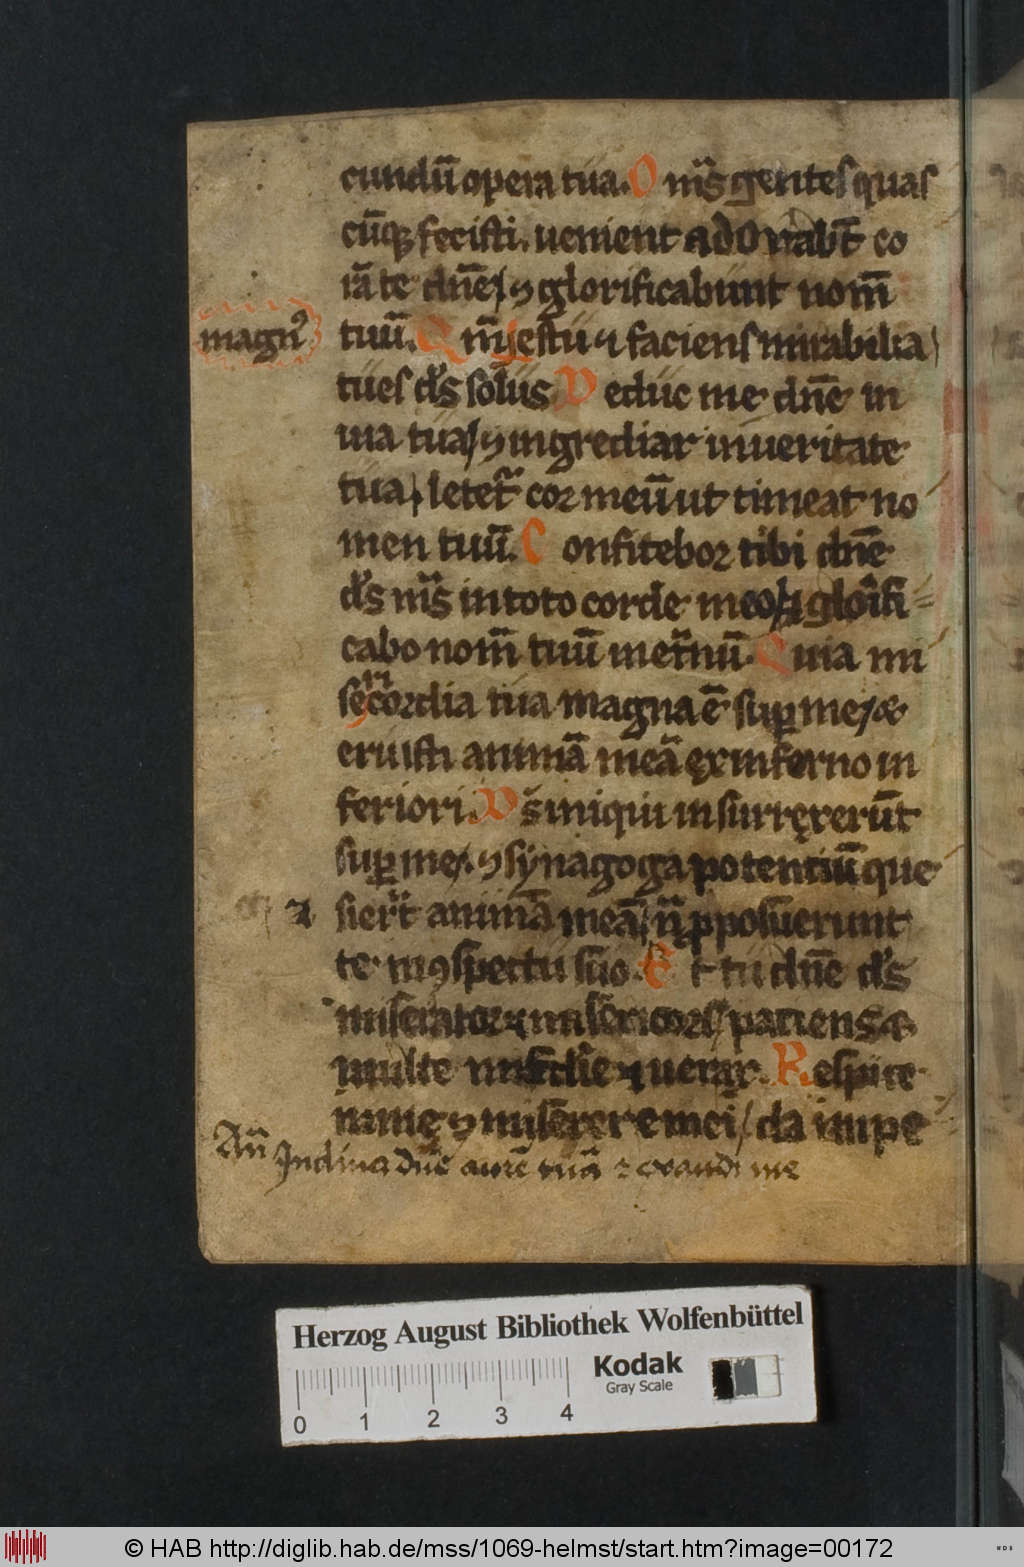 cundū opera tua. Om̄s gentes quas
cūq; fecisti. uenient adorabt̄ co
rā te dn̄e / ⁊ glorificabunt nom̄
magn⁹ tuū. Qm̄ es tu ⁊ faciens mirabilia /
tu es ds̄ solus. Deduc me dn̄e in
uia tua / ⁊ ingrediar in ueritate
tua / letet᷑ cor meū ut timeat no
men tuū. Confitebor tibi dn̄e
ds̄ ms̄ in toto corde meo / ⁊ glo͛ifi
cabo nom̄ tuū in et͛nū. Quia mi
sęricordia tua magna ē sup me / ⁊
eruisti animā meā ęx inferno in
feriori. Ds̄ iniqui insurręxerūt
sup me / ⁊ synagoga potentiū que
sier̄t animā meā / ⁊ n̄ pposuerunt
te in ꝯspectu suo. Et tu dn̄e ds̄
miserator ⁊ misēricors / patiens ⁊
multe mis͛die ⁊ uerax. Respice
in mę ⁊ misērere mei / da impe
An̄ Inclina dn̄e aurē tuā ⁊ exaudi me
Herzog August Bibliothek Wolfenbüttel
Kodak
Gray Scale
0 1 2 3 4
© HAB http://diglib.hab.de/mss/1069-helmst/start.htm?image=00172